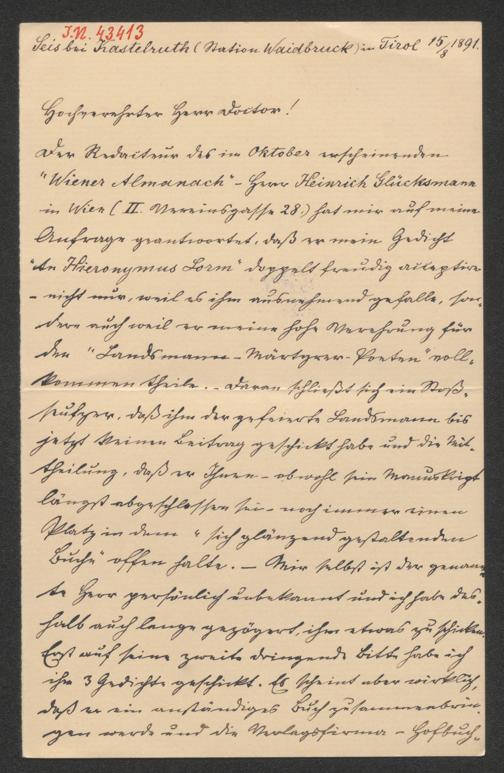 I.N. 43413
Seis bei Kastelruth (Station Waidbruck) in Tirol 15/8 1891.
Hochverehrter Herr Doctor!
Der Redacteur des im Oktober erscheinenden
"Wiener Almanach" - Herr Heinrich Glücksmann
in Wien (II. Vereinsgasse 28.) hat mir auf meine
Anfrage geantwortet, daß er mein Gedicht
"An Hieronymus Lorm" doppelt freudig acceptire
- nicht nur, weil es ihm ausnehmend gefalle, son-
dern auch weil er meine hohe Verehrung für
den "Landsmann-Märtyrer-Poeten" voll-
kommen theile. - Daran schließt sich ein Stoß-
seufzer, daß ihm der gefeierte Landsmann bis
jetzt keinen Beitrag geschickt habe und die Mit-
theilung, daß er Ihnen - obwohl sein Manuskript
längst abgeschlossen sei - noch immer einen
Platz in dem "sich glänzend gestaltenden
Buche" offen halte. - Mir selbst ist der genann-
te Herr persönlich unbekannt und ich habe des-
halb auch lange gezögert, ihm etwas zu schicken.
Erst auf seine zweite dringende Bitte habe ich
ihm 3 Gedichte geschickt. Es scheint aber wirklich,
daß er ein anständiges Buch zusammenbrin-
gen werde und die Verlagsfirma - Hofbuch-